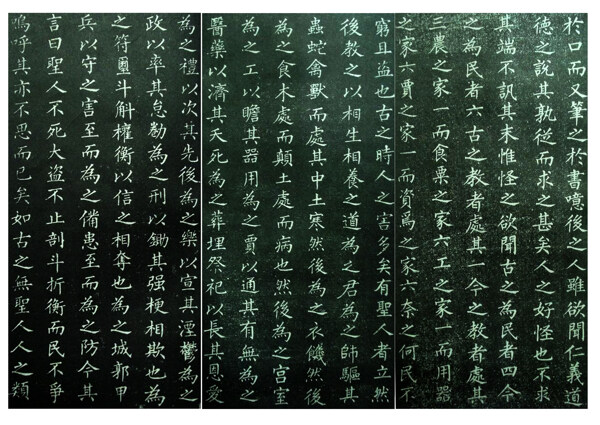 於口而又筆之於書噫後之人雖欲聞仁義道
德之說其孰從而求之甚矣人之好怪也不求
其端不訊其末惟怪之欲聞古之為民者四今
之為民者六古之教者處其一今之教者處其
三農之家一而食粟之家六工之家一而用器
之家六賈之家一而資焉之家六奈之何民不
窮且盜也古之時人之害多矣有聖人者立然
後教之以相生相養之道為之君為之師驅其
蟲蛇禽獸而處其中土寒然後為之衣饑然後
為之食木處而顛土處而病也然後為之宮室
為之工以贍其器用為之賈以通其有無為之
醫藥以濟其夭死為之葬埋祭祀以長其恩愛
為之禮以次其先後為之樂以宣其湮鬱為之
政以率其怠勌為之刑以鋤其强梗相欺也為
之符璽斗斛權衡以信之相奪也為之城郭甲
兵以守之害至而為之備患至而為之防今其
言曰聖人不死大盜不止剖斗折衡而民不爭
嗚呼其亦不思而已矣如古之無聖人人之類